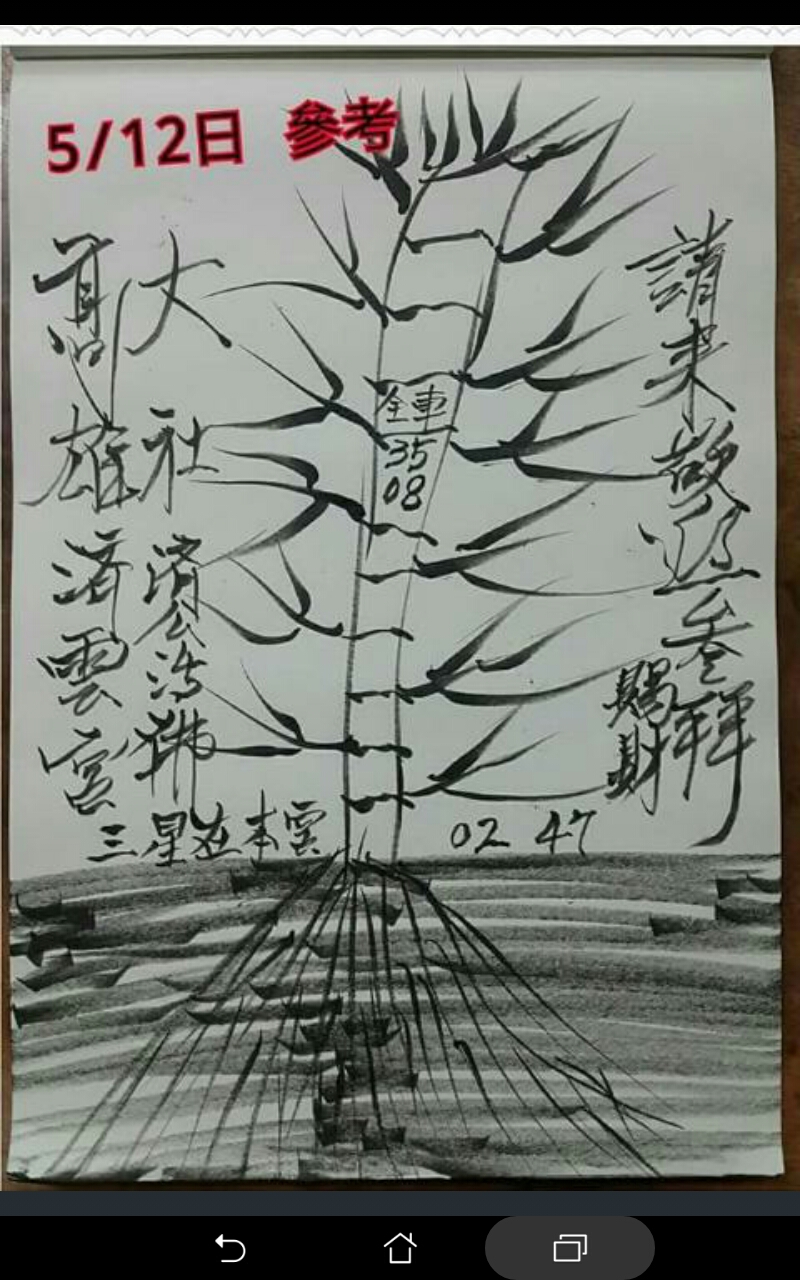 5/12日 參考
高雄濟雲宮
大社濟公活佛
全車
35
08
請來敬巡參拜
賜財
三星在本雲
02 47